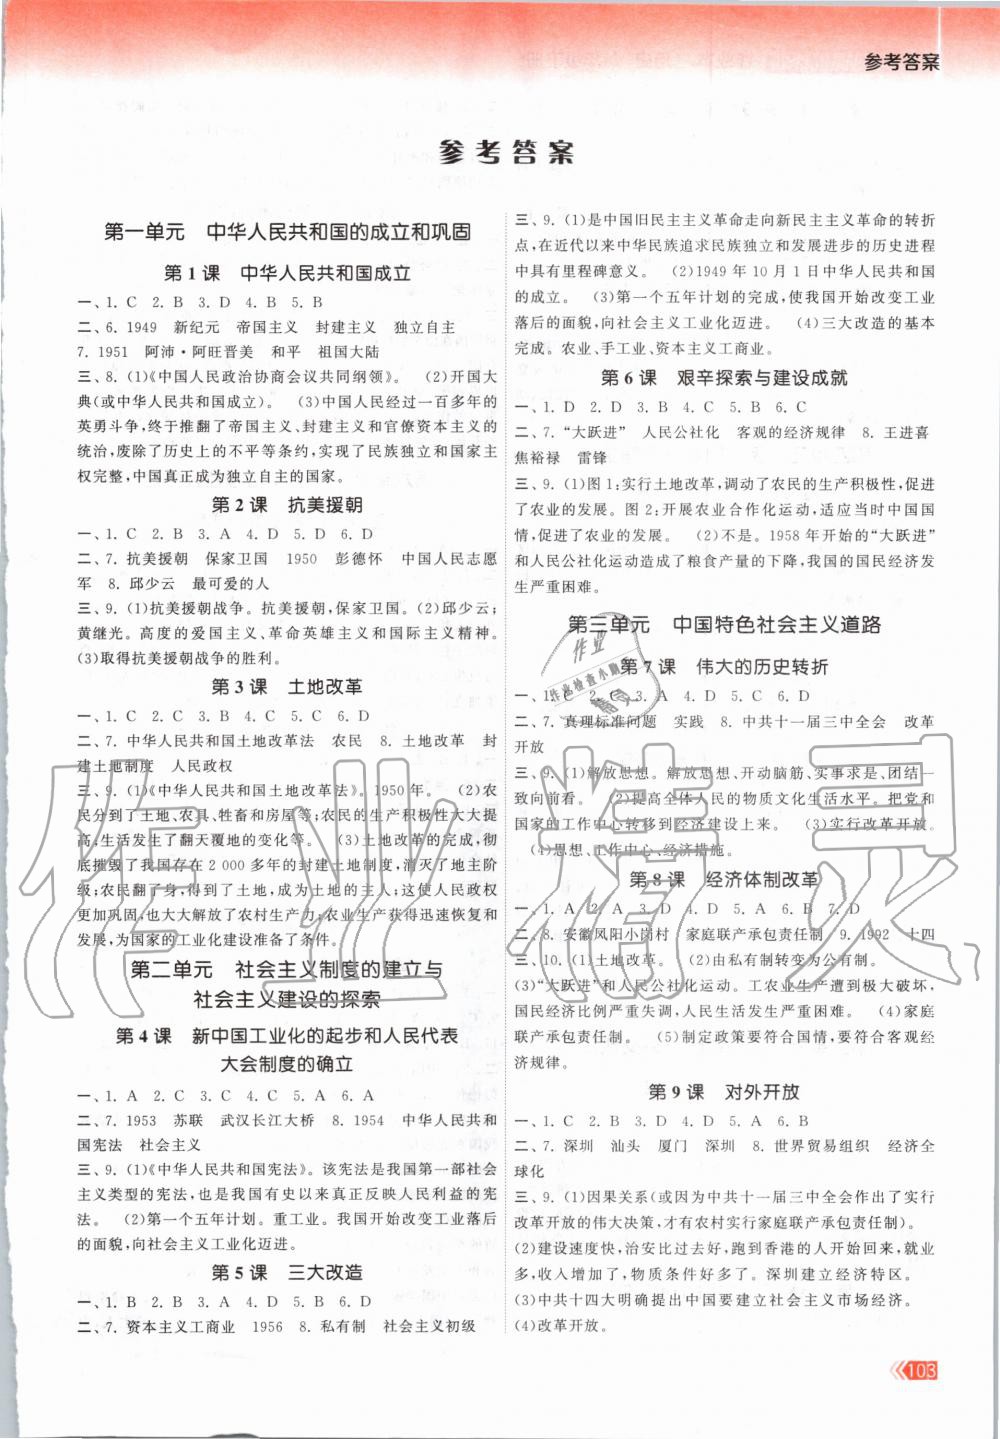 参考答案
参考答案
第一单元　中华人民共和国的成立和巩固
第 1 课　中华人民共和国成立
一、1. C　2. B　3. D　4. B　5. B
二、6. 1949　新纪元　帝国主义　封建主义　独立自主
7. 1951　阿沛·阿旺晋美　和平　祖国大陆
三、8. (1)《中国人民政治协商会议共同纲领》。　(2)开国大
典(或中华人民共和国成立)。　(3)中国人民经过一百多年的
英勇斗争,终于推翻了帝国主义、封建主义和官僚资本主义的
统治,废除了历史上的不平等条约,实现了民族独立和国家主
权完整,中国真正成为独立自主的国家。
第 2 课　抗美援朝
一、1. C　2. B　3. A　4. D　5. D　6. D
二、7. 抗美援朝　保家卫国　1950　彭德怀　中国人民志愿
军　8. 邱少云　最可爱的人
三、9. (1)抗美援朝战争。抗美援朝,保家卫国。(2)邱少云;
黄继光。高度的爱国主义、革命英雄主义和国际主义精神。
(3)取得抗美援朝战争的胜利。
第 3 课　土地改革
一、1. C　2. C　3. B　4. D　5. C　6. D
二、7. 中华人民共和国土地改革法　农民　8. 土地改革　封
建土地制度　人民政权
三、9. (1)《中华人民共和国土地改革法》。1950 年。　(2)农
民分到了土地、农具、牲畜和房屋等;农民的生产积极性大大提
高,生活发生了翻天覆地的变化等。　(3)土地改革的完成,彻
底摧毁了我国存在 2 000 多年的封建土地制度,消灭了地主阶
级;农民翻了身,得到了土地,成为土地的主人;这使人民政权
更加巩固,也大大解放了农村生产力;农业生产获得迅速恢复和
发展,为国家的工业化建设准备了条件。
第二单元　社会主义制度的建立与
社会主义建设的探索
第 4 课　新中国工业化的起步和人民代表
大会制度的确立
一、1. A　2. C　3. C　4. C　5. A　6. A
二、7. 1953　苏联　武汉长江大桥　8. 1954　中华人民共和
国宪法　社会主义
三、9. (1)《中华人民共和国宪法》。该宪法是我国第一部社会
主义类型的宪法,也是我国有史以来真正反映人民利益的宪
法。　(2)第一个五年计划。重工业。我国开始改变工业落后
的面貌,向社会主义工业化迈进。
第 5 课　三大改造
一、1. B　2. A　3. A　4. D　5. B　6. D
二、7. 资本主义工商业　1956　8. 私有制　社会主义初级
三、9. (1)是中国旧民主主义革命走向新民主主义革命的转折
点,在近代以来中华民族追求民族独立和发展进步的历史进程
中具有里程碑意义。　(2)1949 年 10 月 1 日中华人民共和国
的成立。　(3)第一个五年计划的完成,使我国开始改变工业
落后的面貌,向社会主义工业化迈进。　(4)三大改造的基本
完成。农业、手工业、资本主义工商业。
第 6 课　艰辛探索与建设成就
一、1. D　2. D　3. D　4. C　5. B　6. C
二、7. “大跃进”　人民公社化　客观的经济规律　8. 王进喜
焦裕禄　雷锋
三、9. (1)图 1:实行土地改革,调动了农民的生产积极性,促进
了农业的发展。图 2:开展农业合作化运动,适应当时中国国
情,促进了农业的发展。　(2)不是。1958 年开始的“大跃进”
和人民公社化运动造成了粮食产量的下降,我国的国民经济发
生严重困难。
第三单元　中国特色社会主义道路
第 7 课　伟大的历史转折
一、1. C　2. C　3. A　4. D　5. C　6. D
二、7. 真理标准问题　实践　8. 中共十一届三中全会　改革
开放
三、9. (1)解放思想。解放思想、开动脑筋、实事求是、团结一
致向前看。　(2)提高全体人民的物质文化生活水平。把党和
国家的工作中心转移到经济建设上来。　(3)实行改革开放。
(4)思想、工作中心、经济措施。
第 8 课　经济体制改革
一、1. A　2. A　3. D　4. A　5. B　6. A　7. D
二、8. 安徽凤阳小岗村　家庭联产承包责任制　9. 1992　十四
三、10. (1)土地改革。　(2)由私有制转变为公有制。
(3)“大跃进”和人民公社化运动。工农业生产遭到极大破坏,
国民经济比例严重失调,人民生活发生严重困难。　(4)家庭
联产承包责任制。　(5)制定政策要符合国情,要符合客观经
济规律。
第 9 课　对外开放
一、1. C　2. B　3. D　4. D　5. A　6. B
二、7. 深圳　汕头　厦门　深圳　8. 世界贸易组织　经济全
球化
三、9. (1)因果关系(或因为中共十一届三中全会作出了实行
改革开放的伟大决策,才有农村实行家庭联产承包责任制)。
(2)建设速度快,治安比过去好,跑到香港的人开始回来,就业
多,收入增加了,物质条件好多了。深圳建立经济特区。
(3)中共十四大明确提出中国要建立社会主义市场经济。
(4)改革开放。
103
作业
作业检查小助手
作业精灵